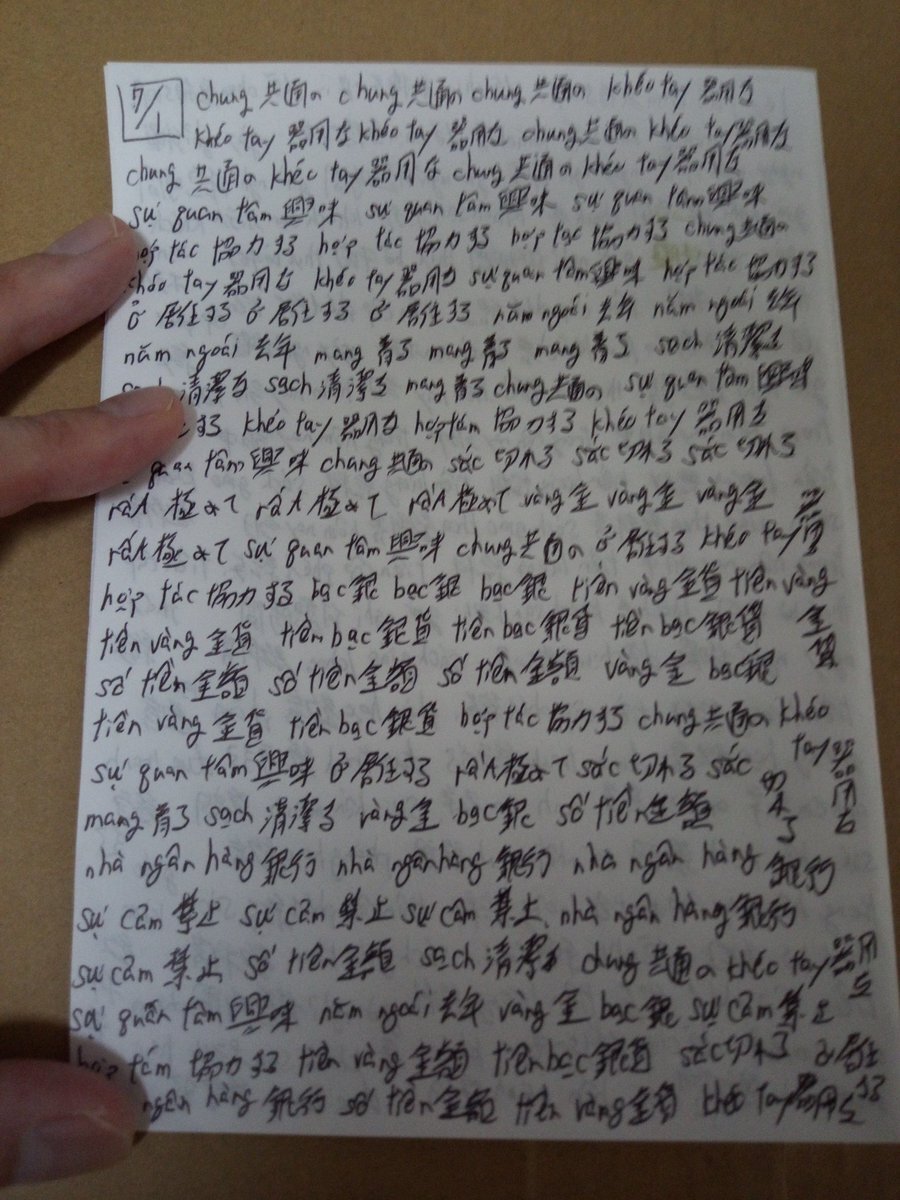 7/1 chung 共通の chung 共通の chung 共通の khéo tay 器用な
khéo tay 器用な khéo tay 器用な chung 共通の khéo tay 器用な
chung 共通の khéo tay 器用な chung 共通の khéo tay 器用な
sự quan tâm 興味 sự quan tâm 興味 sự quan tâm 興味
hợp tác 協力する hợp tác 協力する hợp tác 協力する chung 共通の
khéo tay 器用な khéo tay 器用な sự quan tâm 興味 hợp tác 協力する
ở 居住する ở 居住する ở 居住する năm ngoái 去年 năm ngoái 去年
năm ngoái 去年 mang 着る mang 着る mang 着る sạch 清潔な
sạch 清潔な sạch 清潔な mang 着る chung 共通の sự quan tâm 興味
する khéo tay 器用な hợp tám 協力する khéo tay 器用な
quan tâm 興味 chung 共通の sắc 切れる sắc 切れる sắc 切れる
rất 極めて rất 極めて rất 極めて vàng 金 vàng 金 vàng 金
rất 極めて sự quan tâm 興味 chung 共通の ở 居住する khéo tay 器用
hợp tác 協力する bạc 銀 bạc 銀 bạc 銀 tiền vàng 金貨 tiền vàng
tiền vàng 金貨 tiền bạc 銀貨 tiền bạc 銀貨 tiền bạc 銀貨 金貨
số tiền 金額 số tiền 金額 số tiền 金額 vàng 金 bạc 銀
tiền vàng 金貨 tiền bạc 銀貨 hợp tác 協力する chung 共通の khéo
sự quan tâm 興味 ở 居住する rất 極めて sắc 切れる sắc 切れる tay 器用な
mang 着る sạch 清潔な vàng 金 bạc 銀 số tiền 金額
nhà ngân hàng 銀行 nhà ngân hàng 銀行 nhà ngân hàng 銀行
sự cấm 禁止 sự cấm 禁止 sự cấm 禁止 nhà ngân hàng 銀行
sự cấm 禁止 số tiền 金額 sạch 清潔な chung 共通の khéo tay 器用な
sự quấn tâm 興味 năm ngoái 去年 vàng 金 bạc 銀 sự cấm 禁止
hợp tám 協力する tiền vàng 金額 tiền bạc 銀貨 sắc 切れる ở 居住する
ngân hàng 銀行 số tiền 金額 tiền vàng 金貨 khéo tay 器用な